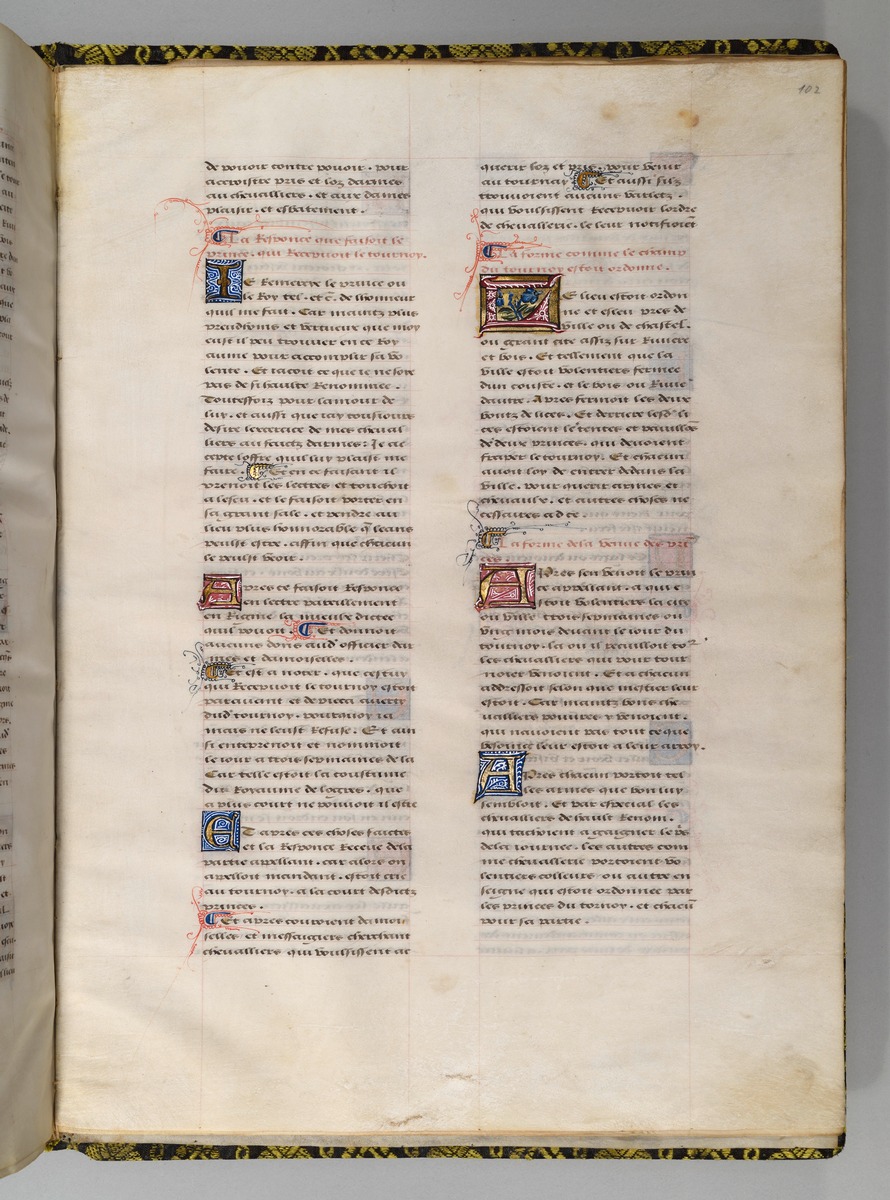 102
de pouoir contre pouoir . pour
accroistre pris et loz darmes
au cheualliers . et aux dames
plaisir . et esbatement .
La Responce que faisoit le
prince . qui Receuoit le tournoy .
IE Remercye le prince ou
le Roy tel . et c̄ . de lhonneur
quil me fait . Car maintz plus
preudoms et vertueux que moy
eust il peu trouuer en ce Roy
aume pour accomplir sa vo
lente . Et iacoit ce que ie ne soye
pas de si haulte Renommee .
Touteffoiz pour lamour de
luy . et aussi que iay tousiours
desire lexercice de mes cheual
liers au faictz darmes : Je ac
cepte loffre quil luy plaist me
faire . Et en ce faisant il
prenoit les lectres et touchoit
a lescu . et le faisoit porter en
sa grant sale . et pendre au
lieu plus honnorable q̄ leans
peust estre . affin que chacun
le peust veoir .
Apres ce faisoit Responce
en lectre pareillement
en Rigme la mieulx dictee
quil pouoit . Et donnoit
aucuns dons aud' officier dar
mes et damoiselles .
Et est a noter . que cestuy
qui Receuoit le tournoy estoit
parauant et de pieca aduerty
dud' tournoy . pourquoy ia
mais ne leust Refuse . Et ain
si entreprenoit et nommoit
le iour a trois sepmaines de la
Car telle estoit la coustume
du Royaume de logres . que
a plus court ne pouuoit il estre
ET apres ces choses faictes
et la Responce Receue de la
partie appellant . car alors on
appelloit mandant . estoit crie
au tournoy . a la court desdictz
princes .
Et apres couroient damoi
selles et messaigiers cherchant
cheualliers qui voulsissent ac
querir loz et pris . pour venir
au tournay Et aussi silz
trouuoient aucuns varletz .
qui voulsissent Receuoir lordre
de cheuallerie . le leur notifioiēt
La forme comme le champ
du tournoy estoit ordonne .
LE lieu estoit ordon
ne et esleu pres de
ville ou de chastel .
ou grant cite assiz sur Riuiere
et bois . Et tellement que la
ville estoit volentiers fermee
dun couste . et le bois ou Riuie'
dautre . Apres fermoit les deux
boutz de lices . Et derriere lesd' li
ces estoient le tentes et pauillōs
de deux princes . qui deuoient
fraper le tournoy . Et chacun
auoit loy de entrer dedans la
ville . pour querir armes et
cheuaulx . et autres choses ne
cessaires ad ce .
La forme de la venue des prī
ces .
APres sen venoit le prin
ce appellant . a qui e
stoit volentiers la cite
ou ville trois sepmaines ou
ving mois deuant le iour du
tournoy . la ou il recuilloit to9
les cheualliers qui pour tour
noyer venoient . Et a chacun
addressoit selon que mestier leur
estoit . Car maintz bons che
ualliers pouures y venoient .
qui nauoient pas tout ce que
besoing leur estoit a leur arroy .
APres chacun portoit tel
les armes que bon luy
sembloit . Et par especial les
cheualliers de hault Renom .
qui tachoient a gaigner le p̄s
de la iournee . les autres com
me cheuallerie portoient vo
lentiers colleurs ou autre en
seigne qui estoit ordonnee par
les princes du tornoy . et chacū
pour sa partie .